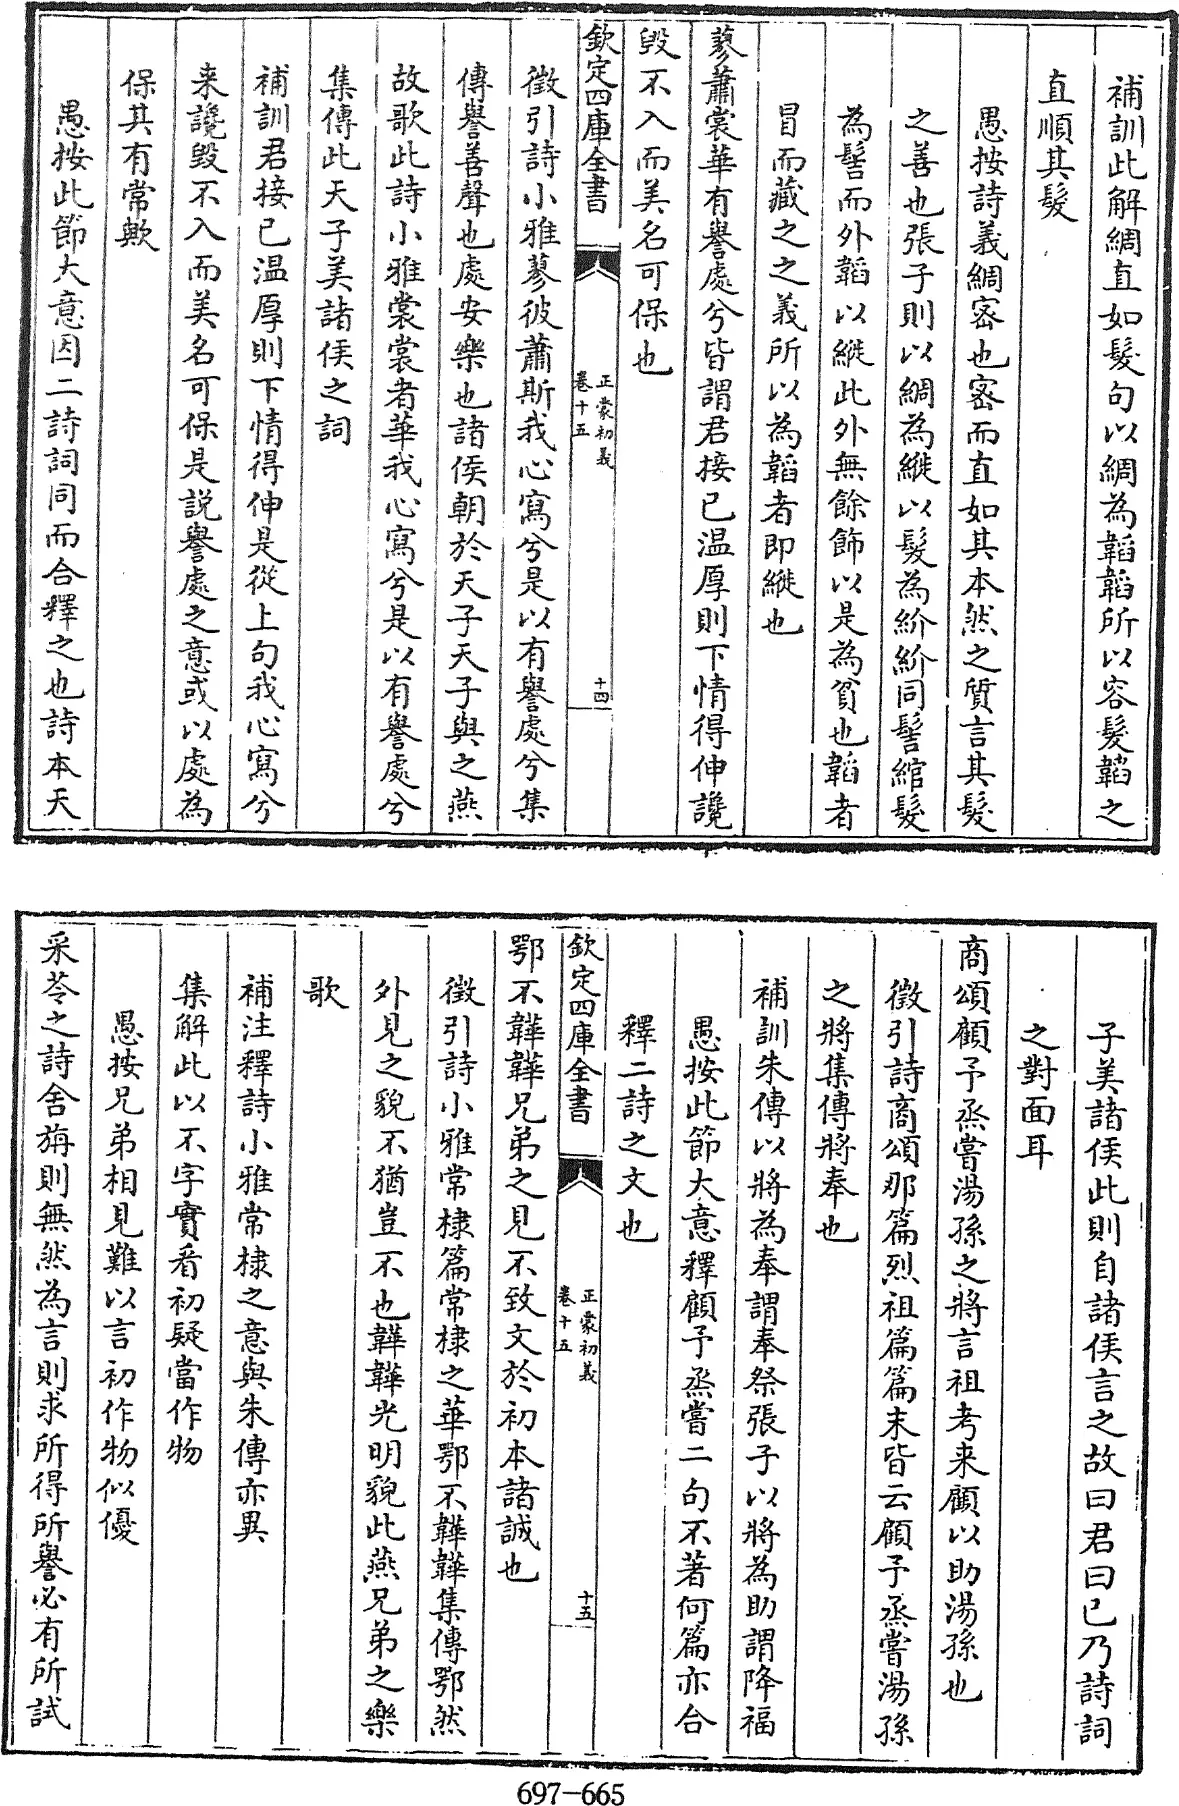 補訓此解綢直如髮句以綢為韜韜所以容髮韜之
直順其髮
愚按詩義綢密也密而直如其本然之質言其髮
之善也張子則以綢為縰以髮為紒紒同髻綰髮
為髻而外韜以縰此外無餘飾以是為貧也韜者
冒而藏之之義所以為韜者即縰也
蓼蕭裳華有譽處兮皆謂君接已温厚則下情得伸讒
毀不入而美名可保也
欽定四庫全書
正蒙初義
卷十五
十四
徵引詩小雅蓼彼蕭斯我心寫兮是以有譽處兮集
傳譽善聲也處安樂也諸侯朝於天子天子與之燕
故歌此詩小雅裳裳者華我心寫兮是以有譽處兮
集傳此天子美諸侯之詞
補訓君接已温厚則下情得伸是從上句我心寫兮
来讒毀不入而美名可保是説譽處之意或以處為
保其有常歟
愚按此節大意因二詩詞同而合釋之也詩本天
子美諸侯此則自諸侯言之故曰君曰已乃詩詞
之對面耳
商頌顧予烝嘗湯孫之將言祖考来顧以助湯孫也
徵引詩商頌那篇烈祖篇篇末皆云顧予烝嘗湯孫
之將集傳將奉也
補訓朱傳以將為奉謂奉祭張子以將為助謂降福
愚按此節大意釋顧予烝嘗二句不著何篇亦合
釋二詩之文也
欽定四庫全書
正蒙初義
卷十五
十五
鄂不韡韡兄弟之見不致文於初本諸誠也
徵引詩小雅常棣篇常棣之華鄂不韡韡集傳鄂然
外見之貌不猶豈不也韡韡光明貌此燕兄弟之樂
歌
補注釋詩小雅常棣之意與朱傳亦異
集解此以不字實看初疑當作物
愚按兄弟相見難以言初作物似優
采苓之詩舍旃則無然為言則求所得所譽必有所試
697-665